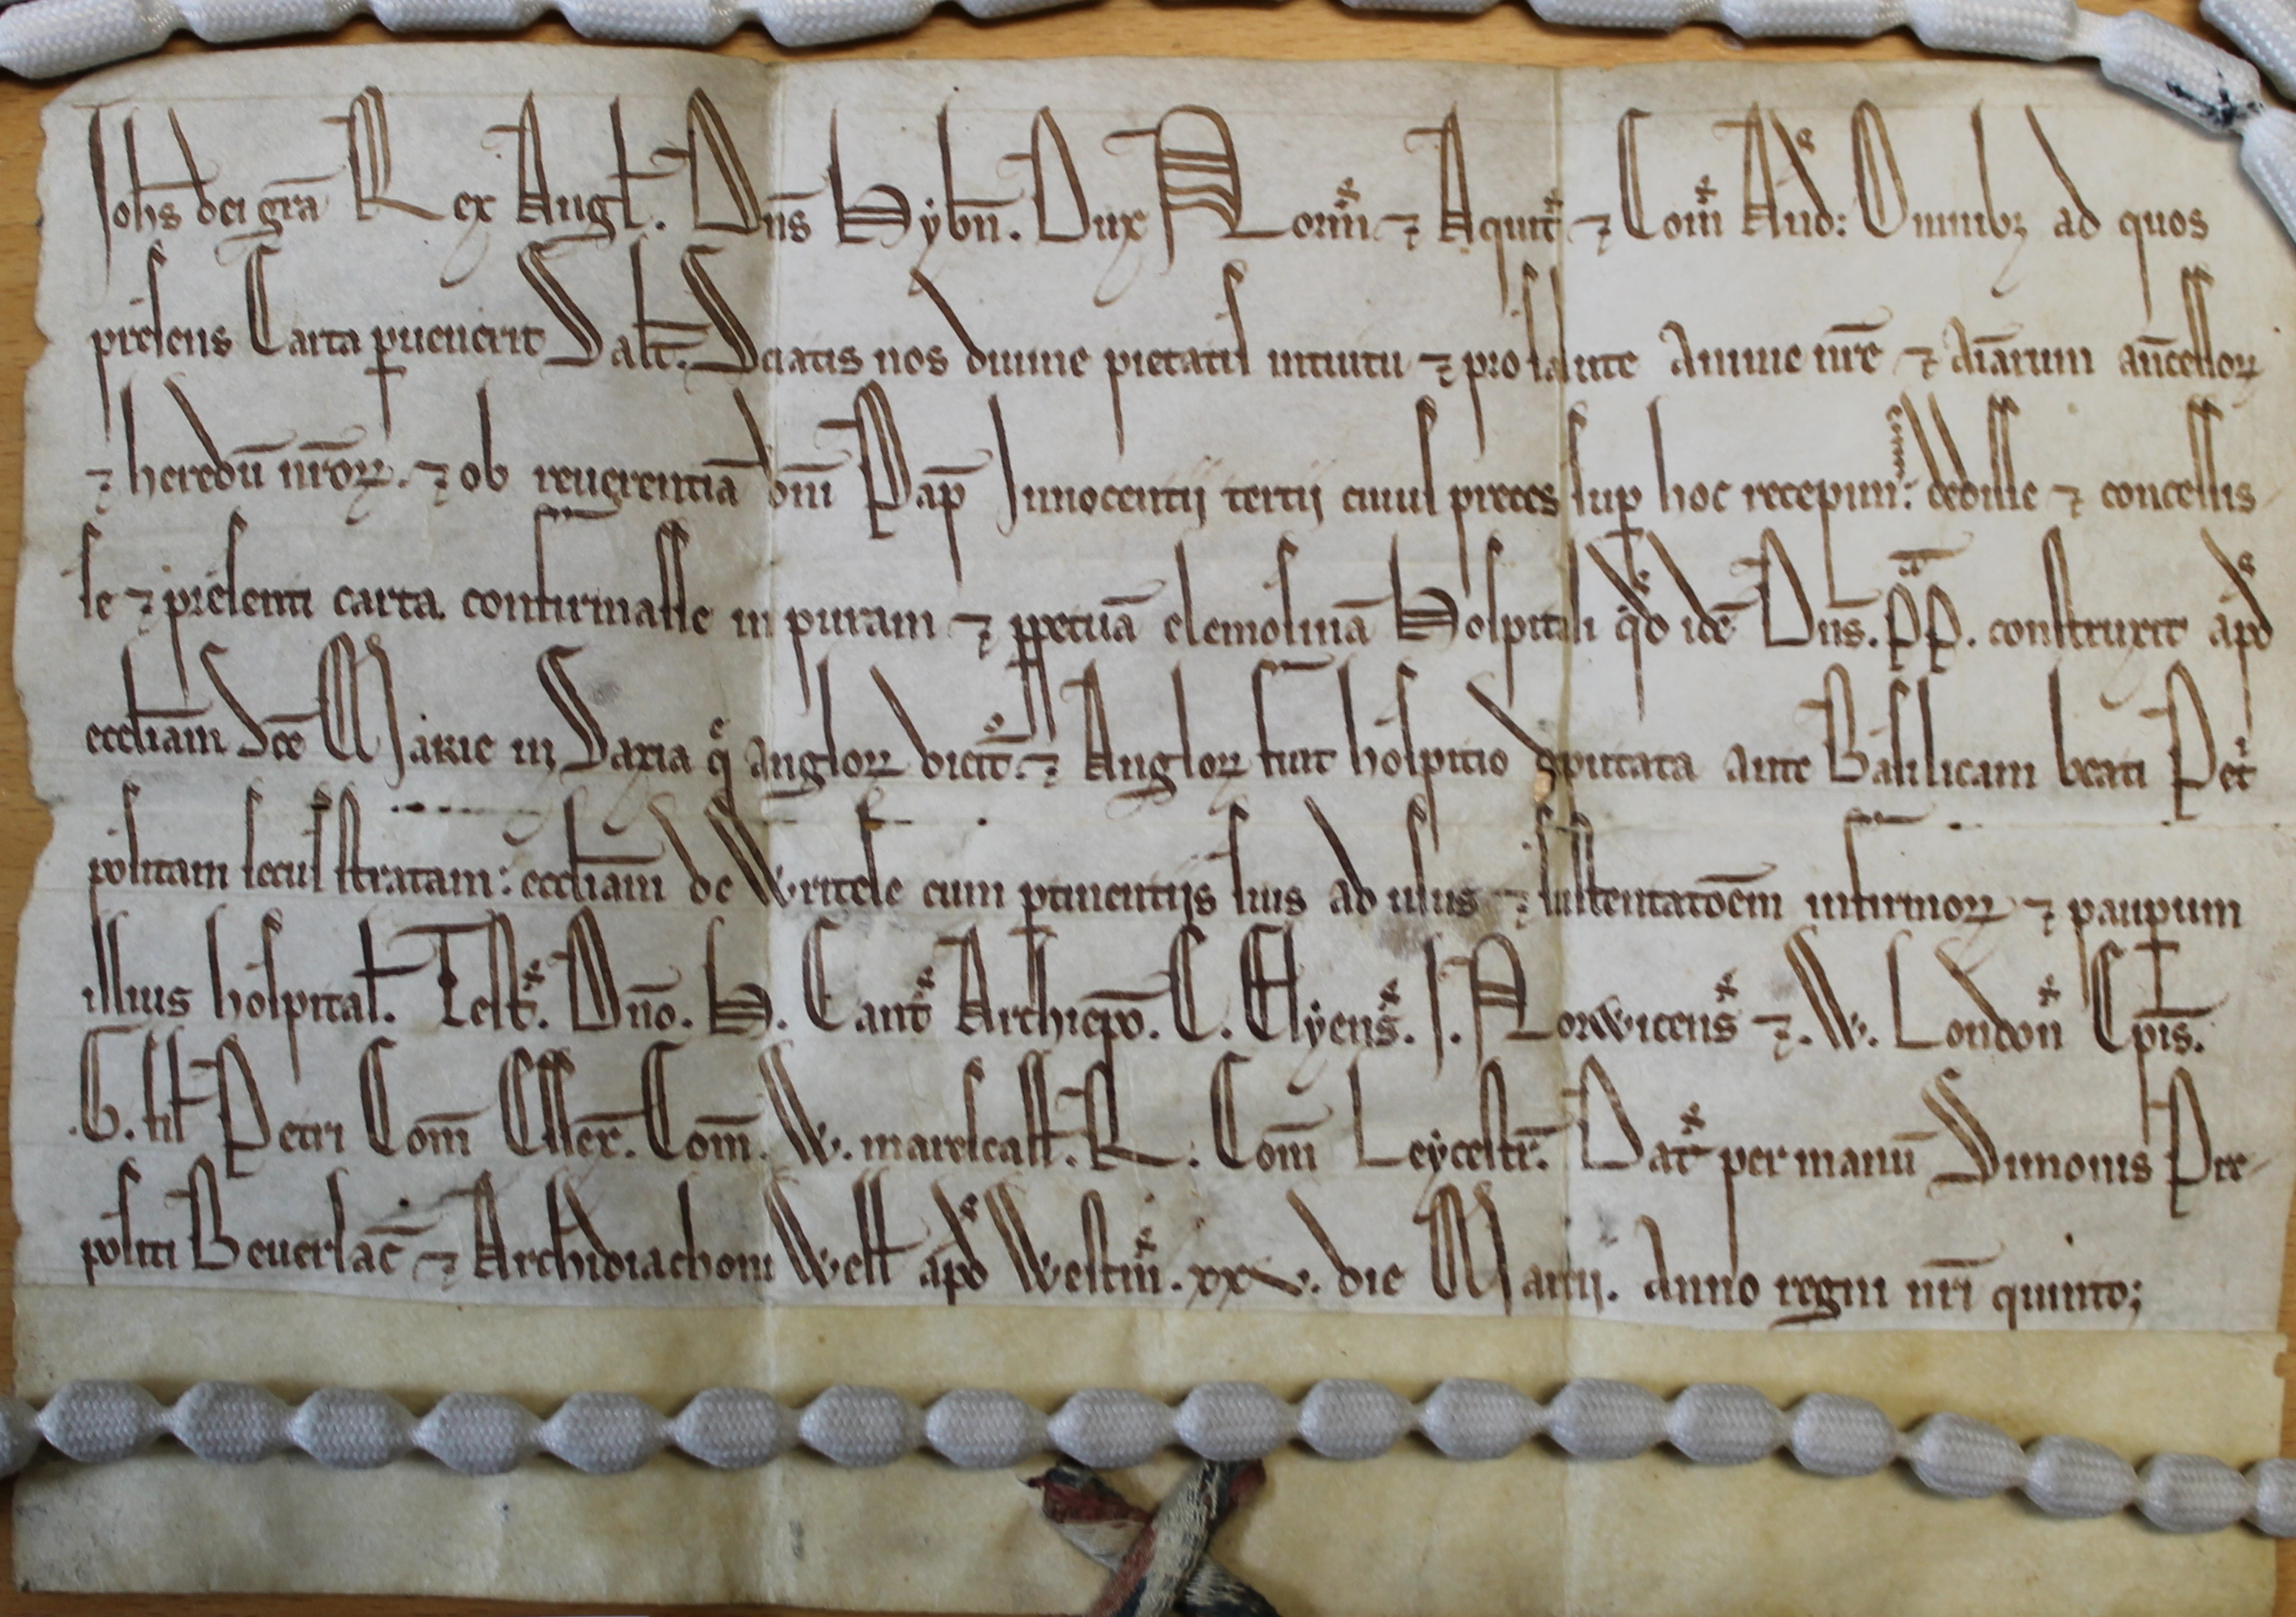 Joh̄s dei gr̄a Rex Angł. Dn̄s Hybn̄. Dux Norm̄ ⁊ Aquit̄ ⁊ Com̄ And: Omnibꝫ ad quos
presens Carta ꝑuenerit Salt̄. Sciatis nos diuine pietatis intuitu ⁊ pro salute Anime nr̄e ⁊ Aīarum an̄cessoꝝ
⁊ heredū nr̄oꝝ. ⁊ ob reuerentiā dn̄i Pap̄ Innocentij tertij cuius preces sup̱ hoc recepim̄: dedisse ⁊ concessis
se ⁊ presenti carta confirmasse in puram ⁊ ꝑpetuā elemosinā Hospitali qͦd idē Dn̄s. pp̄. construxit apd
eccłiam Sc̄e Marie in Saxia q̄ Angloꝝ dicit̄. ⁊ Angloꝝ fuit hospitio deputata ante Basilicam beati Pet̄
positam secus stratam: eccłiam de Writele cum ꝑtinentijs suis ad usus ⁊ sustentatōem infirmoꝝ ⁊ pauꝑum
illius hospitał. Test̄. Dn̄o. H. Cant̄ Archiep̄o. E. Elyens̄. J. Norwicens̄ ⁊. W. London̄ Ep̄is.
G. fił Petri Com̄ Essex̄. Com̄. W. marescałł. R. Com̄ Leycestr̄. Dat̄ per manū Simonis Pre
positi Beuerlac̄ ⁊ Archidiachoni Wełł apd Westm̄. xxv. die Marcij. Anno regni nr̄i quinto;